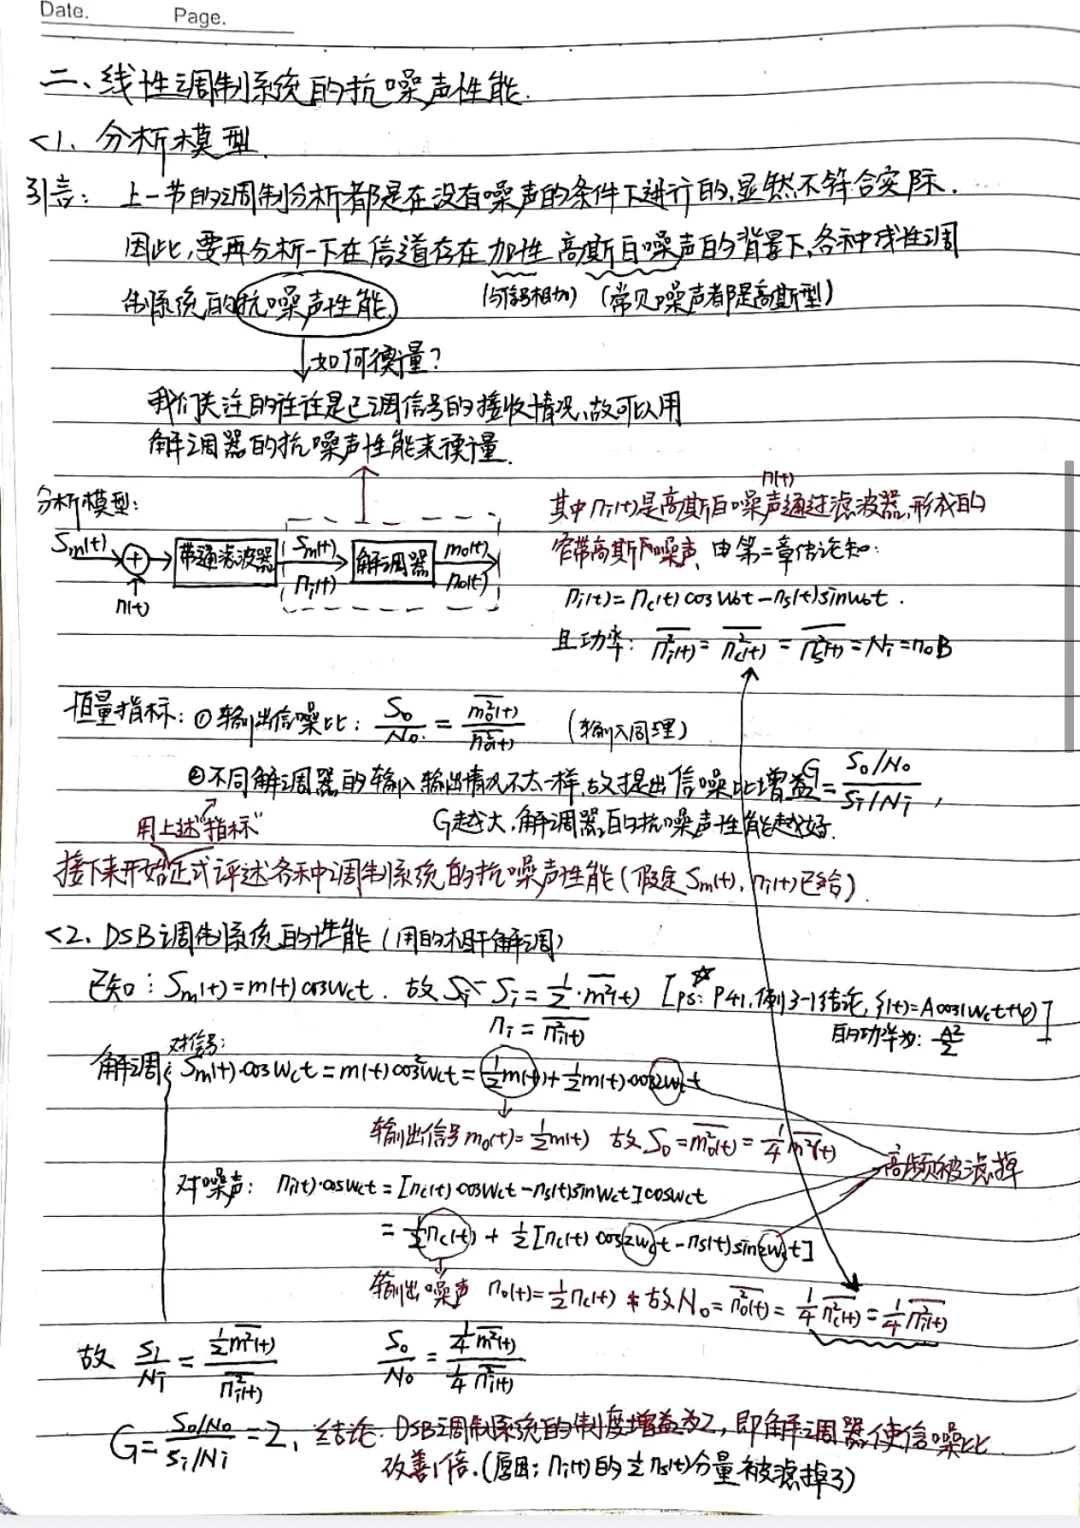 Date.    Page.
二、线性调制系统的抗噪声性能.
<1、分析模型
引言：上一节的调制分析都是在没有噪声的条件下进行的,显然不符合实际.
因此,要再分析一下在信道存在加性高斯白噪声的背景下,各种线性调
制系统的抗噪声性能.
(与信号相加) (常见噪声都是高斯型)
↓如何衡量?
我们关注的往往是已调信号的接收情况,故可以用
解调器的抗噪声性能来衡量.
分析模型:
Sm(t) + n(t) 带通滤波器 Sm(t) ni(t) 解调器 mo(t) no(t)
其中ni(t)是高斯白噪声n(t)通过滤波器,形成的
窄带高斯噪声,由第二章结论知:
ni(t)=nc(t)cosω0t-ns(t)sinω0t.
且功率: n̅i²(t)̅ = n̅c²(t)̅ = n̅s²(t)̅ = Ni = n0B
恒量指标: ①输出信噪比: So/No = m̅o²(t)̅/n̅o²(t)̅ (输入同理)
②不同解调器的输入输出情况不太一样,故提出信噪比增益G=(So/No)/(Si/Ni),
用上述"指标"
G越大,解调器的抗噪声性能越好.
接下来开始正式评述各种调制系统的抗噪声性能(假定Sm(t),ni(t)已给)
<2、DSB调制系统的性能(用的相干解调)
已知: Sm(t)=m(t)cosωct. 故 Si=½·m̅²(t)̅ [ps: P41,例3-1结论,S(t)=Acos(ωct+φ)]
的功率为: A²/2
ni=n̅i²(t)̅
解调
对信号:
Sm(t)·cosωct=m(t)cos²ωct=½m(t)+½m(t)·cos2ωct
输出信号mo(t)=½m(t) 故So=m̅o²(t)̅=¼m̅²(t)̅
高频被滤掉
对噪声: ni(t)·cosωct=[nc(t)cosωct-ns(t)sinωct]cosωct
=½nc(t)+½[nc(t)cos2ωct-ns(t)sin2ωct]
输出噪声 no(t)=½nc(t) 故No=n̅o²(t)̅=¼n̅c²(t)̅=¼n̅i²(t)̅
故 Si/Ni=½m̅²(t)̅/n̅i²(t)̅  So/No=¼m̅²(t)̅/¼n̅i²(t)̅
G=(So/No)/(Si/Ni)=2, 结论:DSB调制系统的制度增益为2,即解调器使信噪比
改善1倍.(原因:ni(t)的½ns(t)分量被滤掉了)